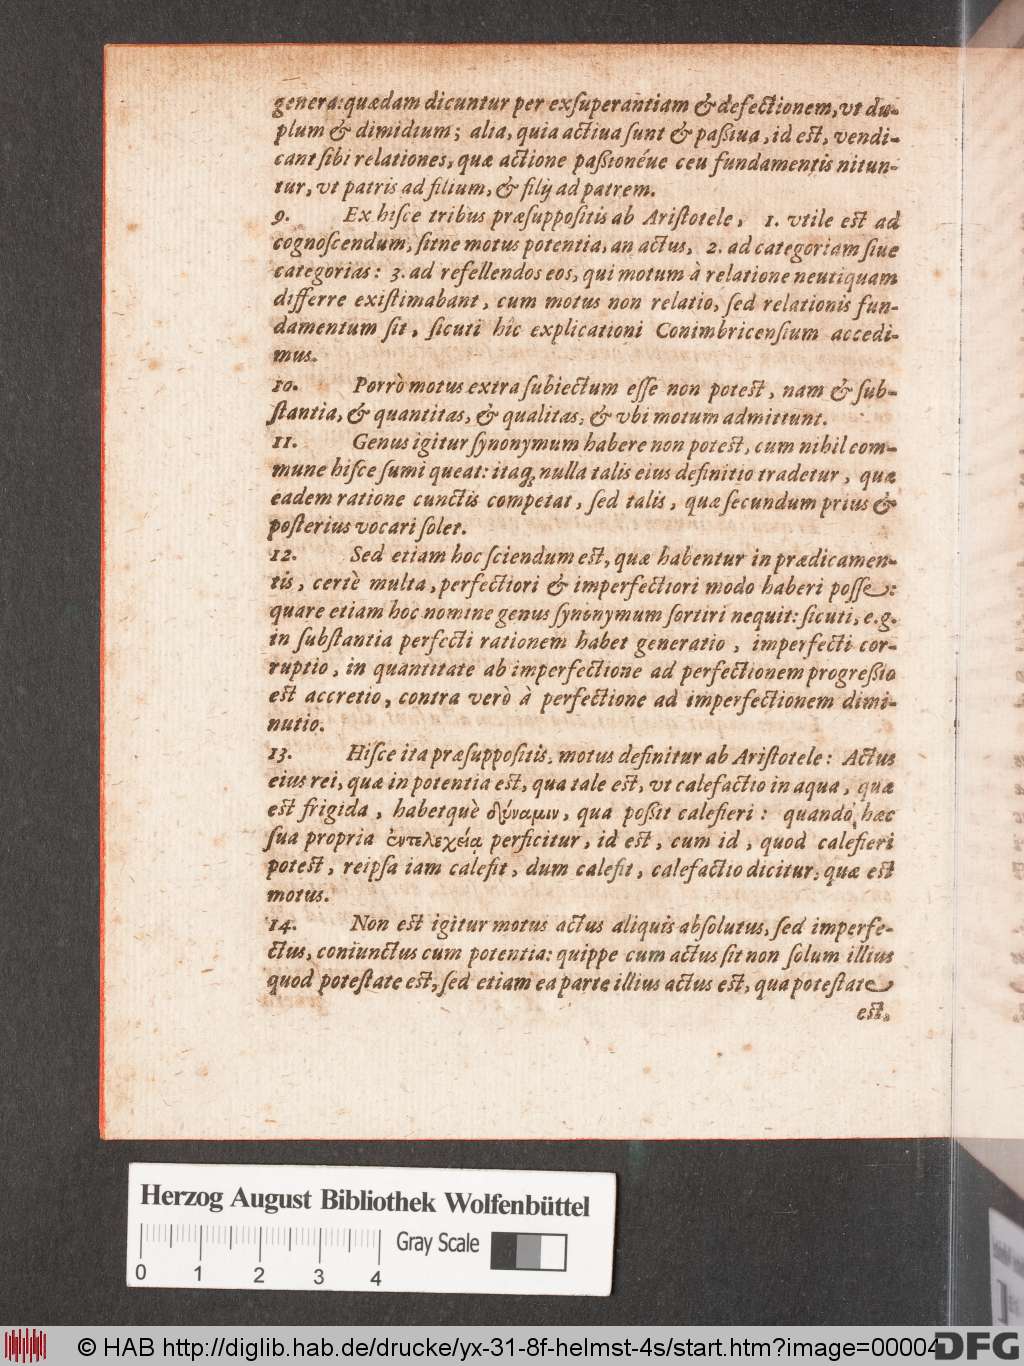 genera: quædam dicuntur per exſuperantiam & defectionem, vt du-
plum & dimidium; alia, quia actiua ſunt & paßiua, id eſt, vendi-
cant ſibi relationes, quæ actione paßionéue ceu fundamentis nitun-
tur, vt patris ad filium, & filij ad patrem.
9. Ex hiſce tribus præſuppoſitis ab Ariſtotele, 1. vtile eſt ad
cognoſcendum, ſitne motus potentia, an actus, 2. ad categoriam ſiue
categorias: 3. ad refellendos eos, qui motum à relatione neutiquam
differre exiſtimabant, cum motus non relatio, ſed relationis fun-
damentum ſit, ſicuti hîc explicationi Conimbricenſium accedi-
mus.
10. Porrò motus extra ſubiectum eſſe non poteſt, nam & ſub-
ſtantia, & quantitas, & qualitas, & vbi motum admittunt.
11. Genus igitur ſynonymum habere non poteſt, cum nihil com-
mune hiſce ſumi queat: itaq; nulla talis eius definitio tradetur, quæ
eadem ratione cunctis competat, ſed talis, quæ ſecundum prius &
poſterius vocari ſolet.
12. Sed etiam hoc ſciendum eſt, quæ habentur in prædicamen-
tis, certè multa, perfectiori & imperfectiori modo haberi poſſe:
quare etiam hoc nomine genus ſynonymum ſortiri nequit: ſicuti, e.g.
in ſubſtantia perfecti rationem habet generatio, imperfecti cor-
ruptio, in quantitate ab imperfectione ad perfectionem progreßio
eſt accretio, contra verò à perfectione ad imperfectionem dimi-
nutio.
13. Hiſce ita præſuppoſitis, motus definitur ab Ariſtotele: Actus
eius rei, quæ in potentia eſt, qua tale eſt, vt calefactio in aqua, quæ
eſt frigida, habetquè δύναμιν, qua poßit calefieri: quando hæc
ſua propria ἐντελεχείᾳ perficitur, id eſt, cum id, quod calefieri
poteſt, reipſa iam calefit, dum calefit, calefactio dicitur, quæ eſt
motus.
14. Non eſt igitur motus actus aliquis abſolutus, ſed imperfe-
ctus, coniunctus cum potentia: quippe cum actus ſit non ſolum illius
quod poteſtate eſt, ſed etiam ea parte illius actus eſt, qua poteſtate
eſt.
Herzog August Bibliothek Wolfenbüttel
Gray Scale
0 1 2 3 4
© HAB http://diglib.hab.de/drucke/yx-31-8f-helmst-4s/start.htm?image=00004
DFG